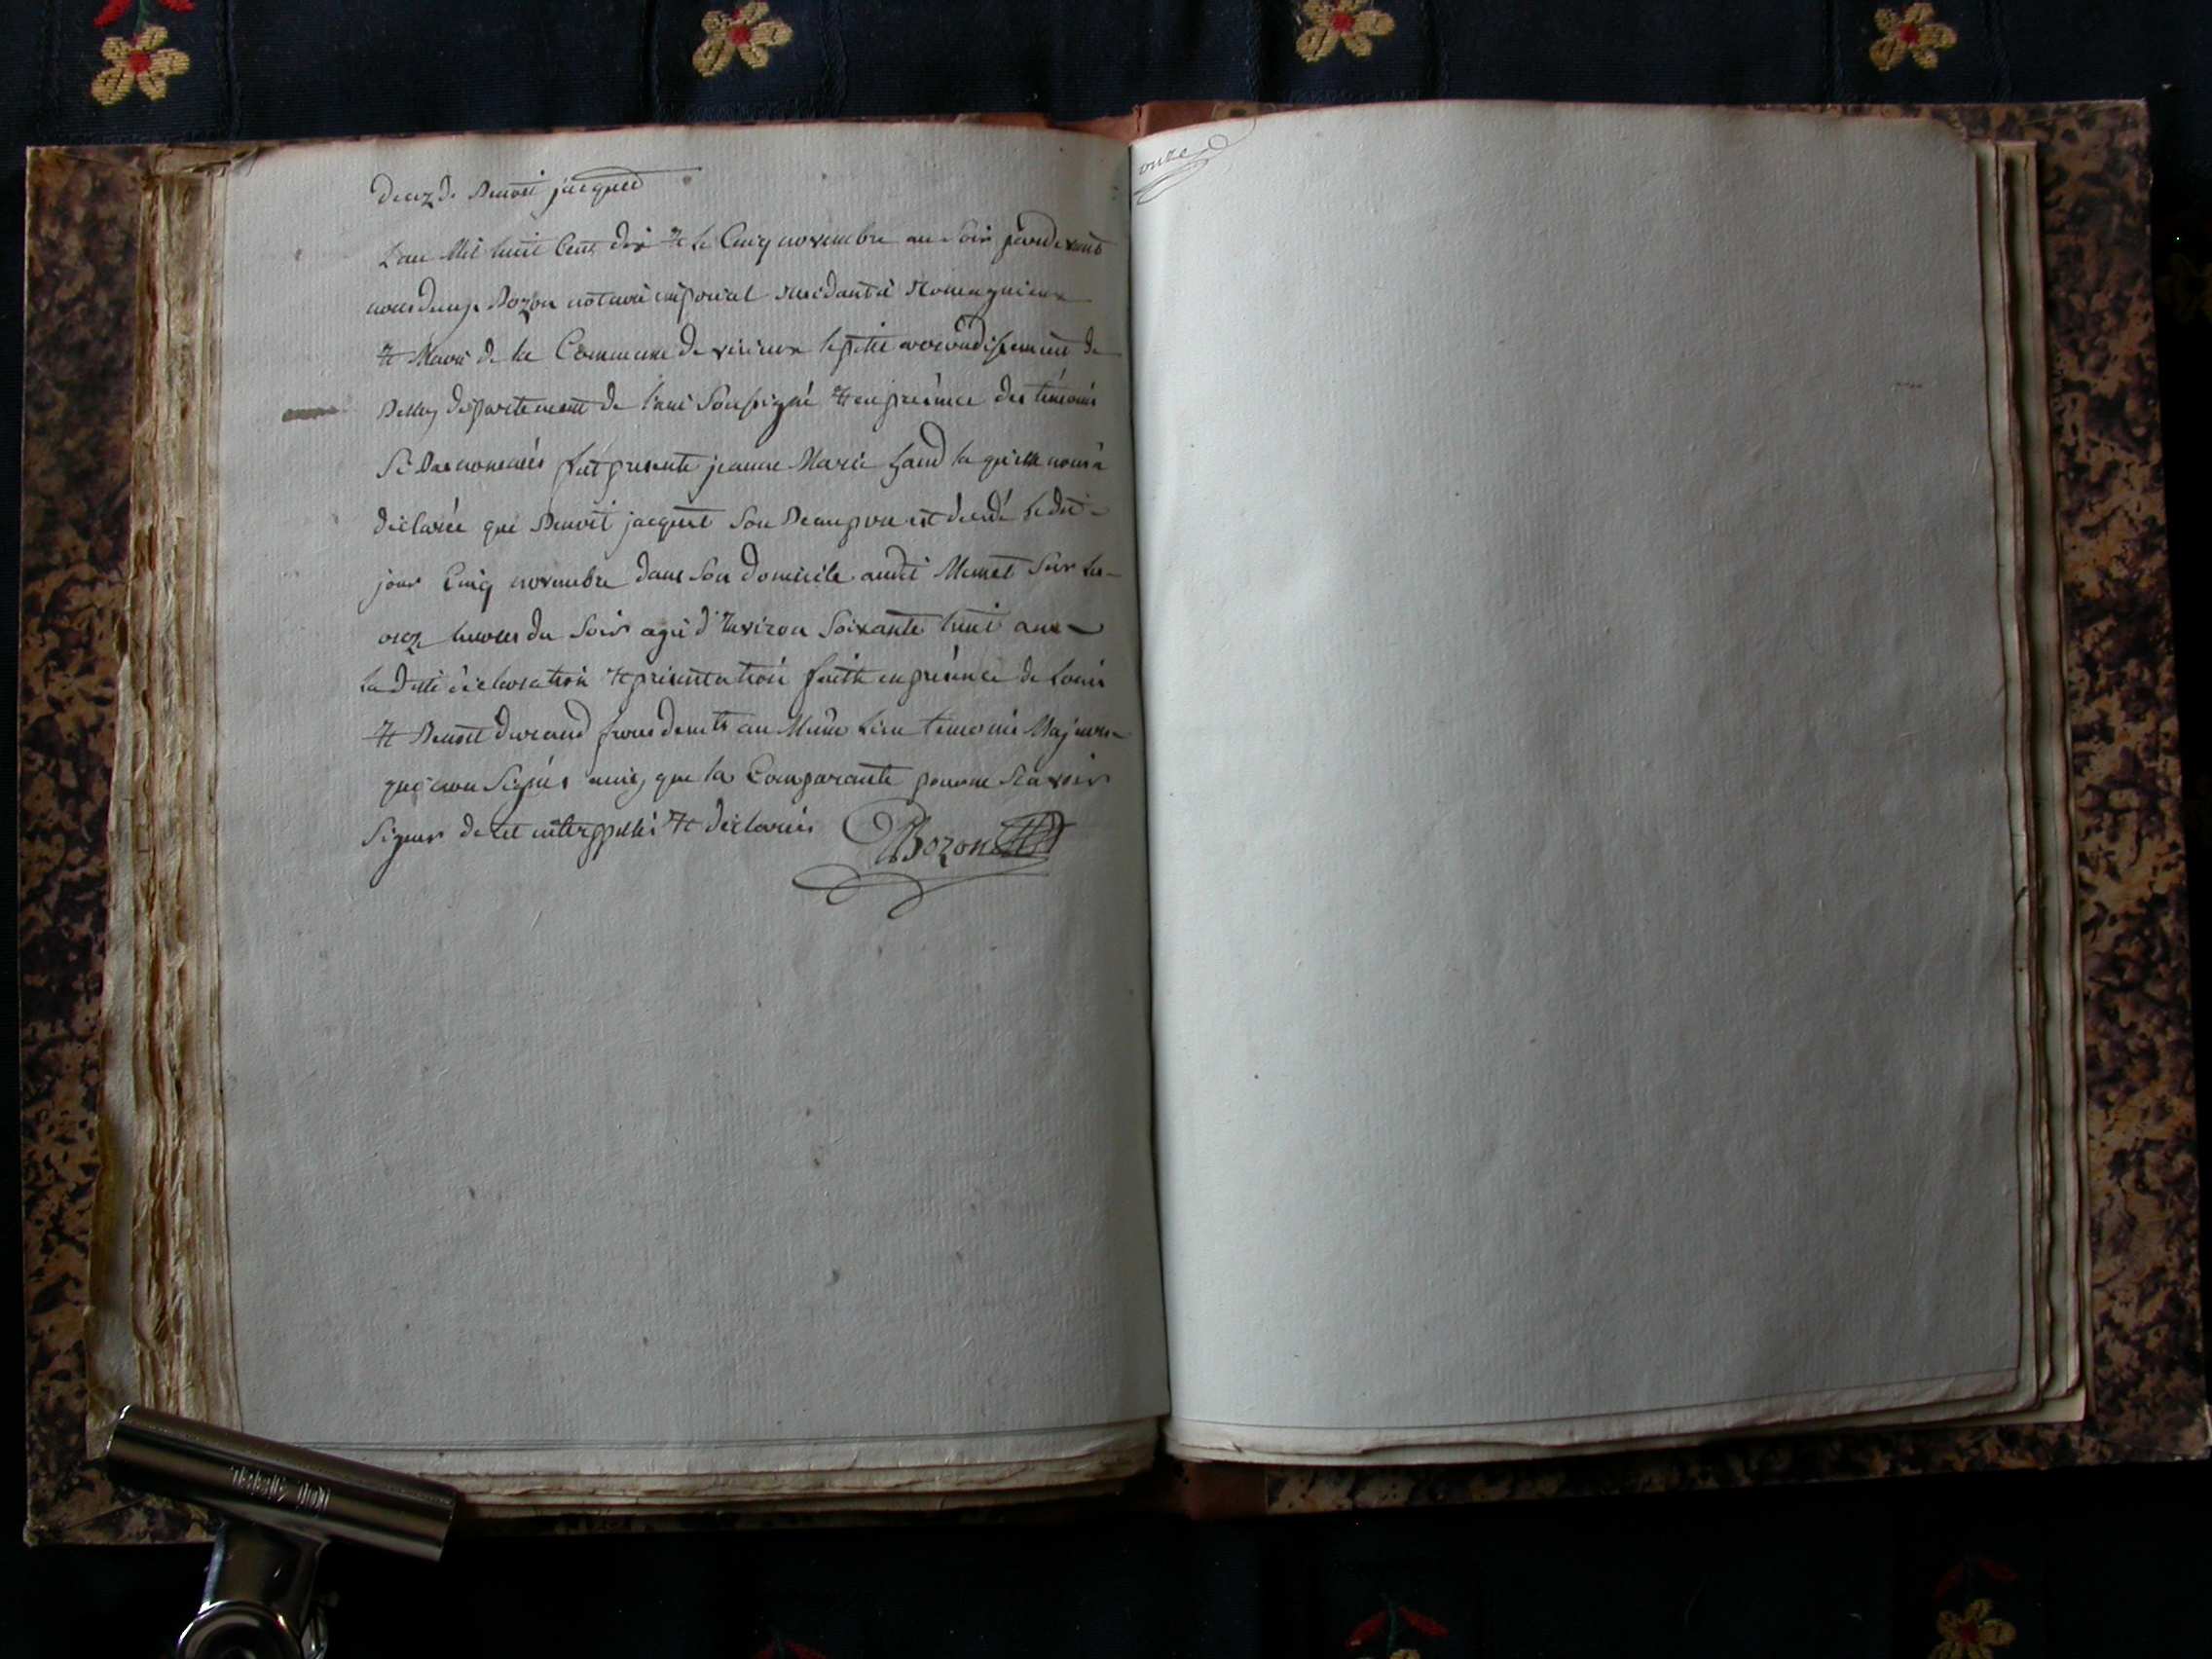 decez de Benoit jacquet
L'an Mil huit Cent dix & le Cinq novembre au Soir pardevant
nous Bozon notaire imperial residant à
& Maire de la Commune de virieux le petit arrondissement de
Belley departement de l'ain Soussigné & en présence des témoins
Bas nommés fut presente jeanne Marie la quelle nous a
déclarée que Benoit jacquet Son Beaupere est decedé le dit
jour Cinq novembre dans Son domicile audit Sur les
onze heures du Soir agé d'Environ Soixante huit ans
la ditte déclaration & présentation faitte en présence de Louis
& Benoit durand au Même Lieu temoins Majeurs
que la Comparante pour ne Scavoir
Signer de ce interppellés & déclarés Bozon
onze